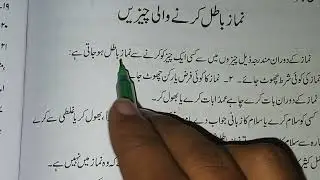 نماز باطل کرنے والی چیزیں
نماز کے دوران مندرجہ ذیل چیزوں میں سے کسی ایک چیز کو کرنے سے نماز باطل ہو جاتی ہے:
نماز کی کوئی شرط چھوٹ جائے۔ ۲۔ نماز کا کوئی فرض یا رکن چھوٹ جائے
کے دوران بات کرے چاہے عمداً بات کرے یا بھول کر۔
کسی کو سلام کرے یا سلام کا زبانی جواب دے بھول کر یا غلطی سے
کثیر کرے کہ وہ نماز میں نہیں ہے۔